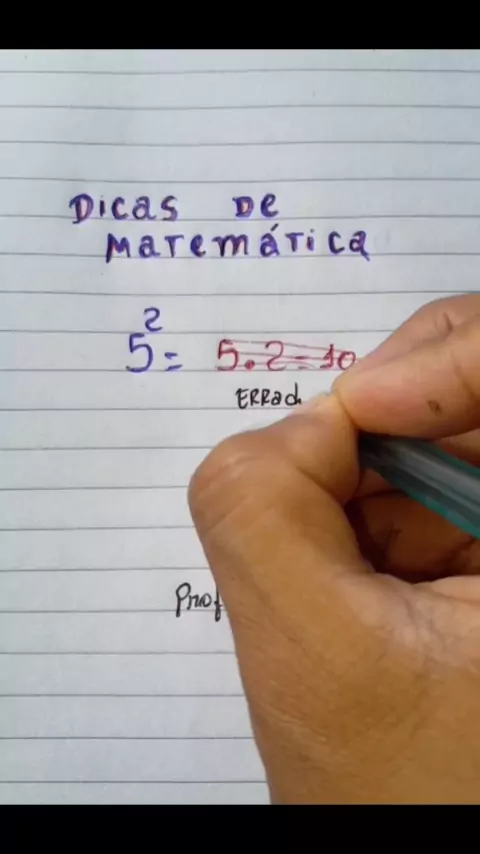 Dicas de
matemática
5² = 5.2=10
Errad
Prof